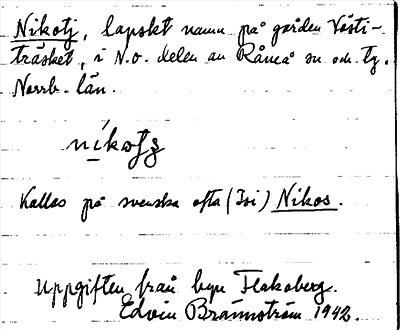 Nikotj, lapskt namn på gården Västi-
träsket, i N.o. delen av Råneå sn och tg.
Norrb. län.
níkotʒ
Kallas på svenska ofta (Isi) Nikos.
Uppgiften från byn Flakaberg.
Edvin Brännström 1942.